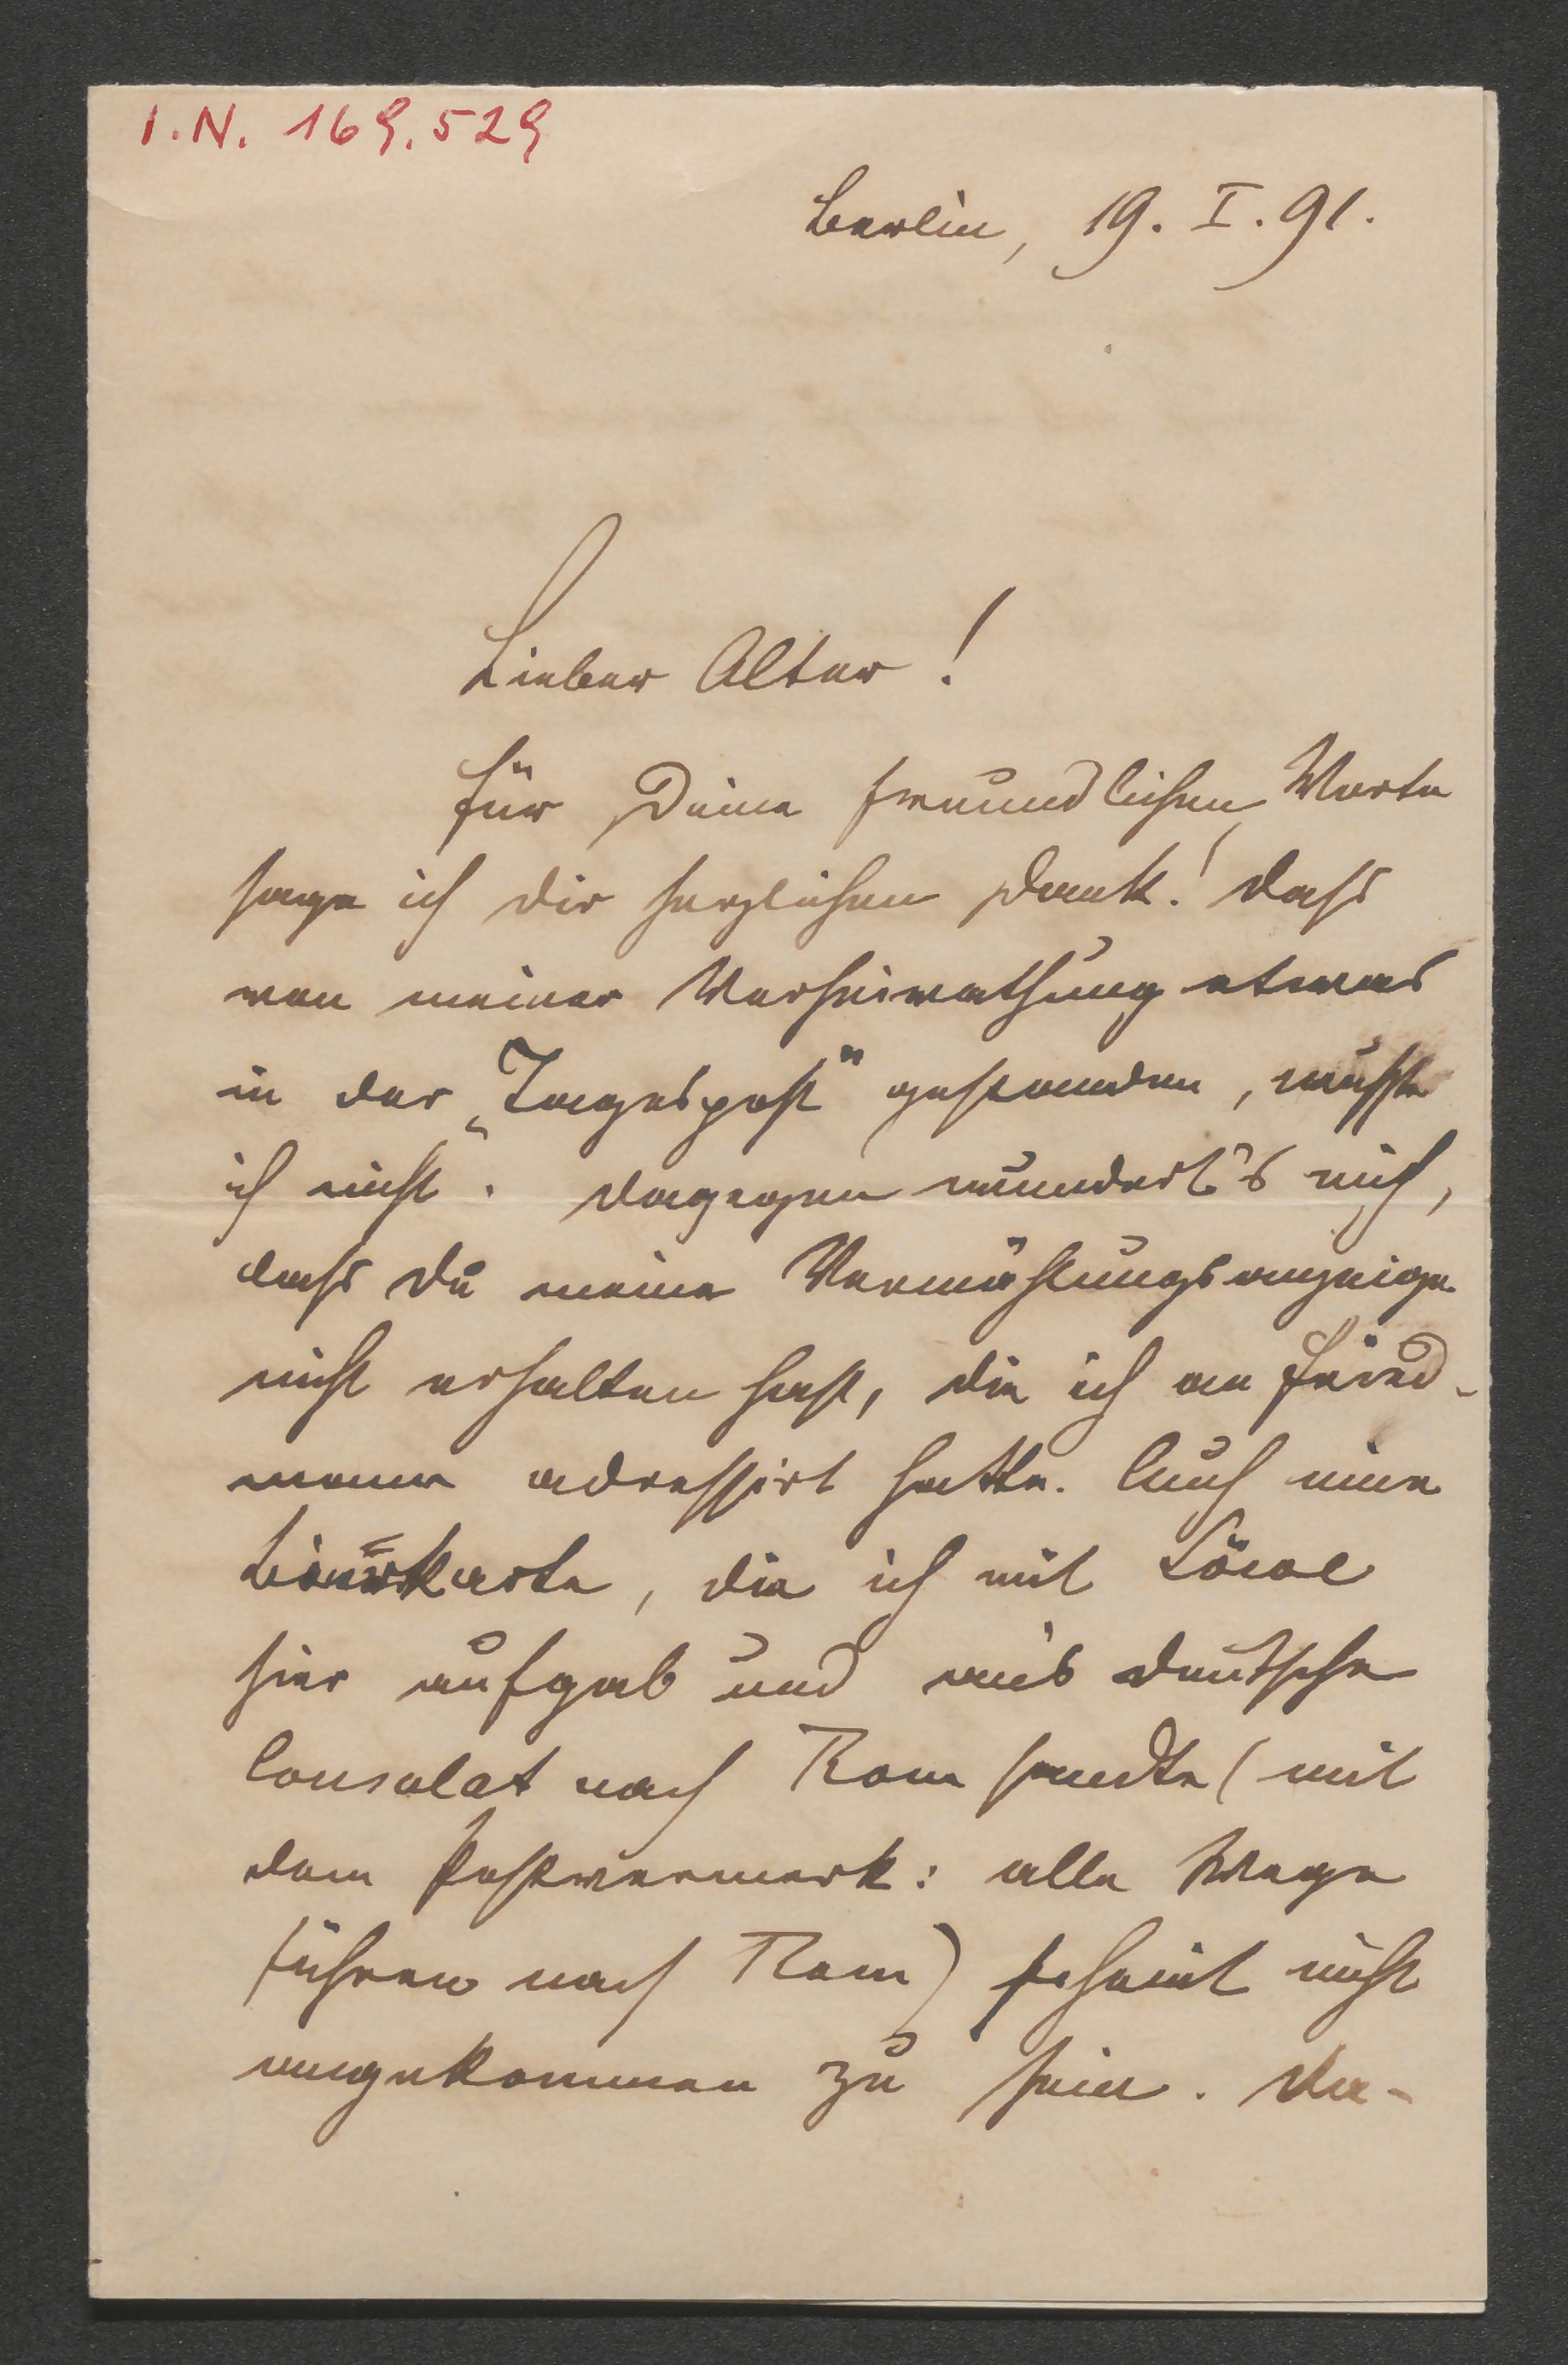 I.N. 169.529
Berlin, 19. I. 91.
Lieber Alter!
Für Deine freundlichen Worte
sage ich Dir herzlichen Dank! Dass
von meiner Verheirathung etwas
in der „Tagespost" gestanden, wusste
ich nicht. Dagegen wundert's mich,
dass Du meine Vermählungsanzeige
nicht erhalten hast, die ich an Fried-
mann adressirt hatte. Auch eine
karte, die ich mit Löwe
hier aufgab und an's deutsche
Consulat nach Rom sandte (mit
dem Postvermerk: alle Wege
führen nach Rom) scheint nicht
angekommen zu sein. Da-